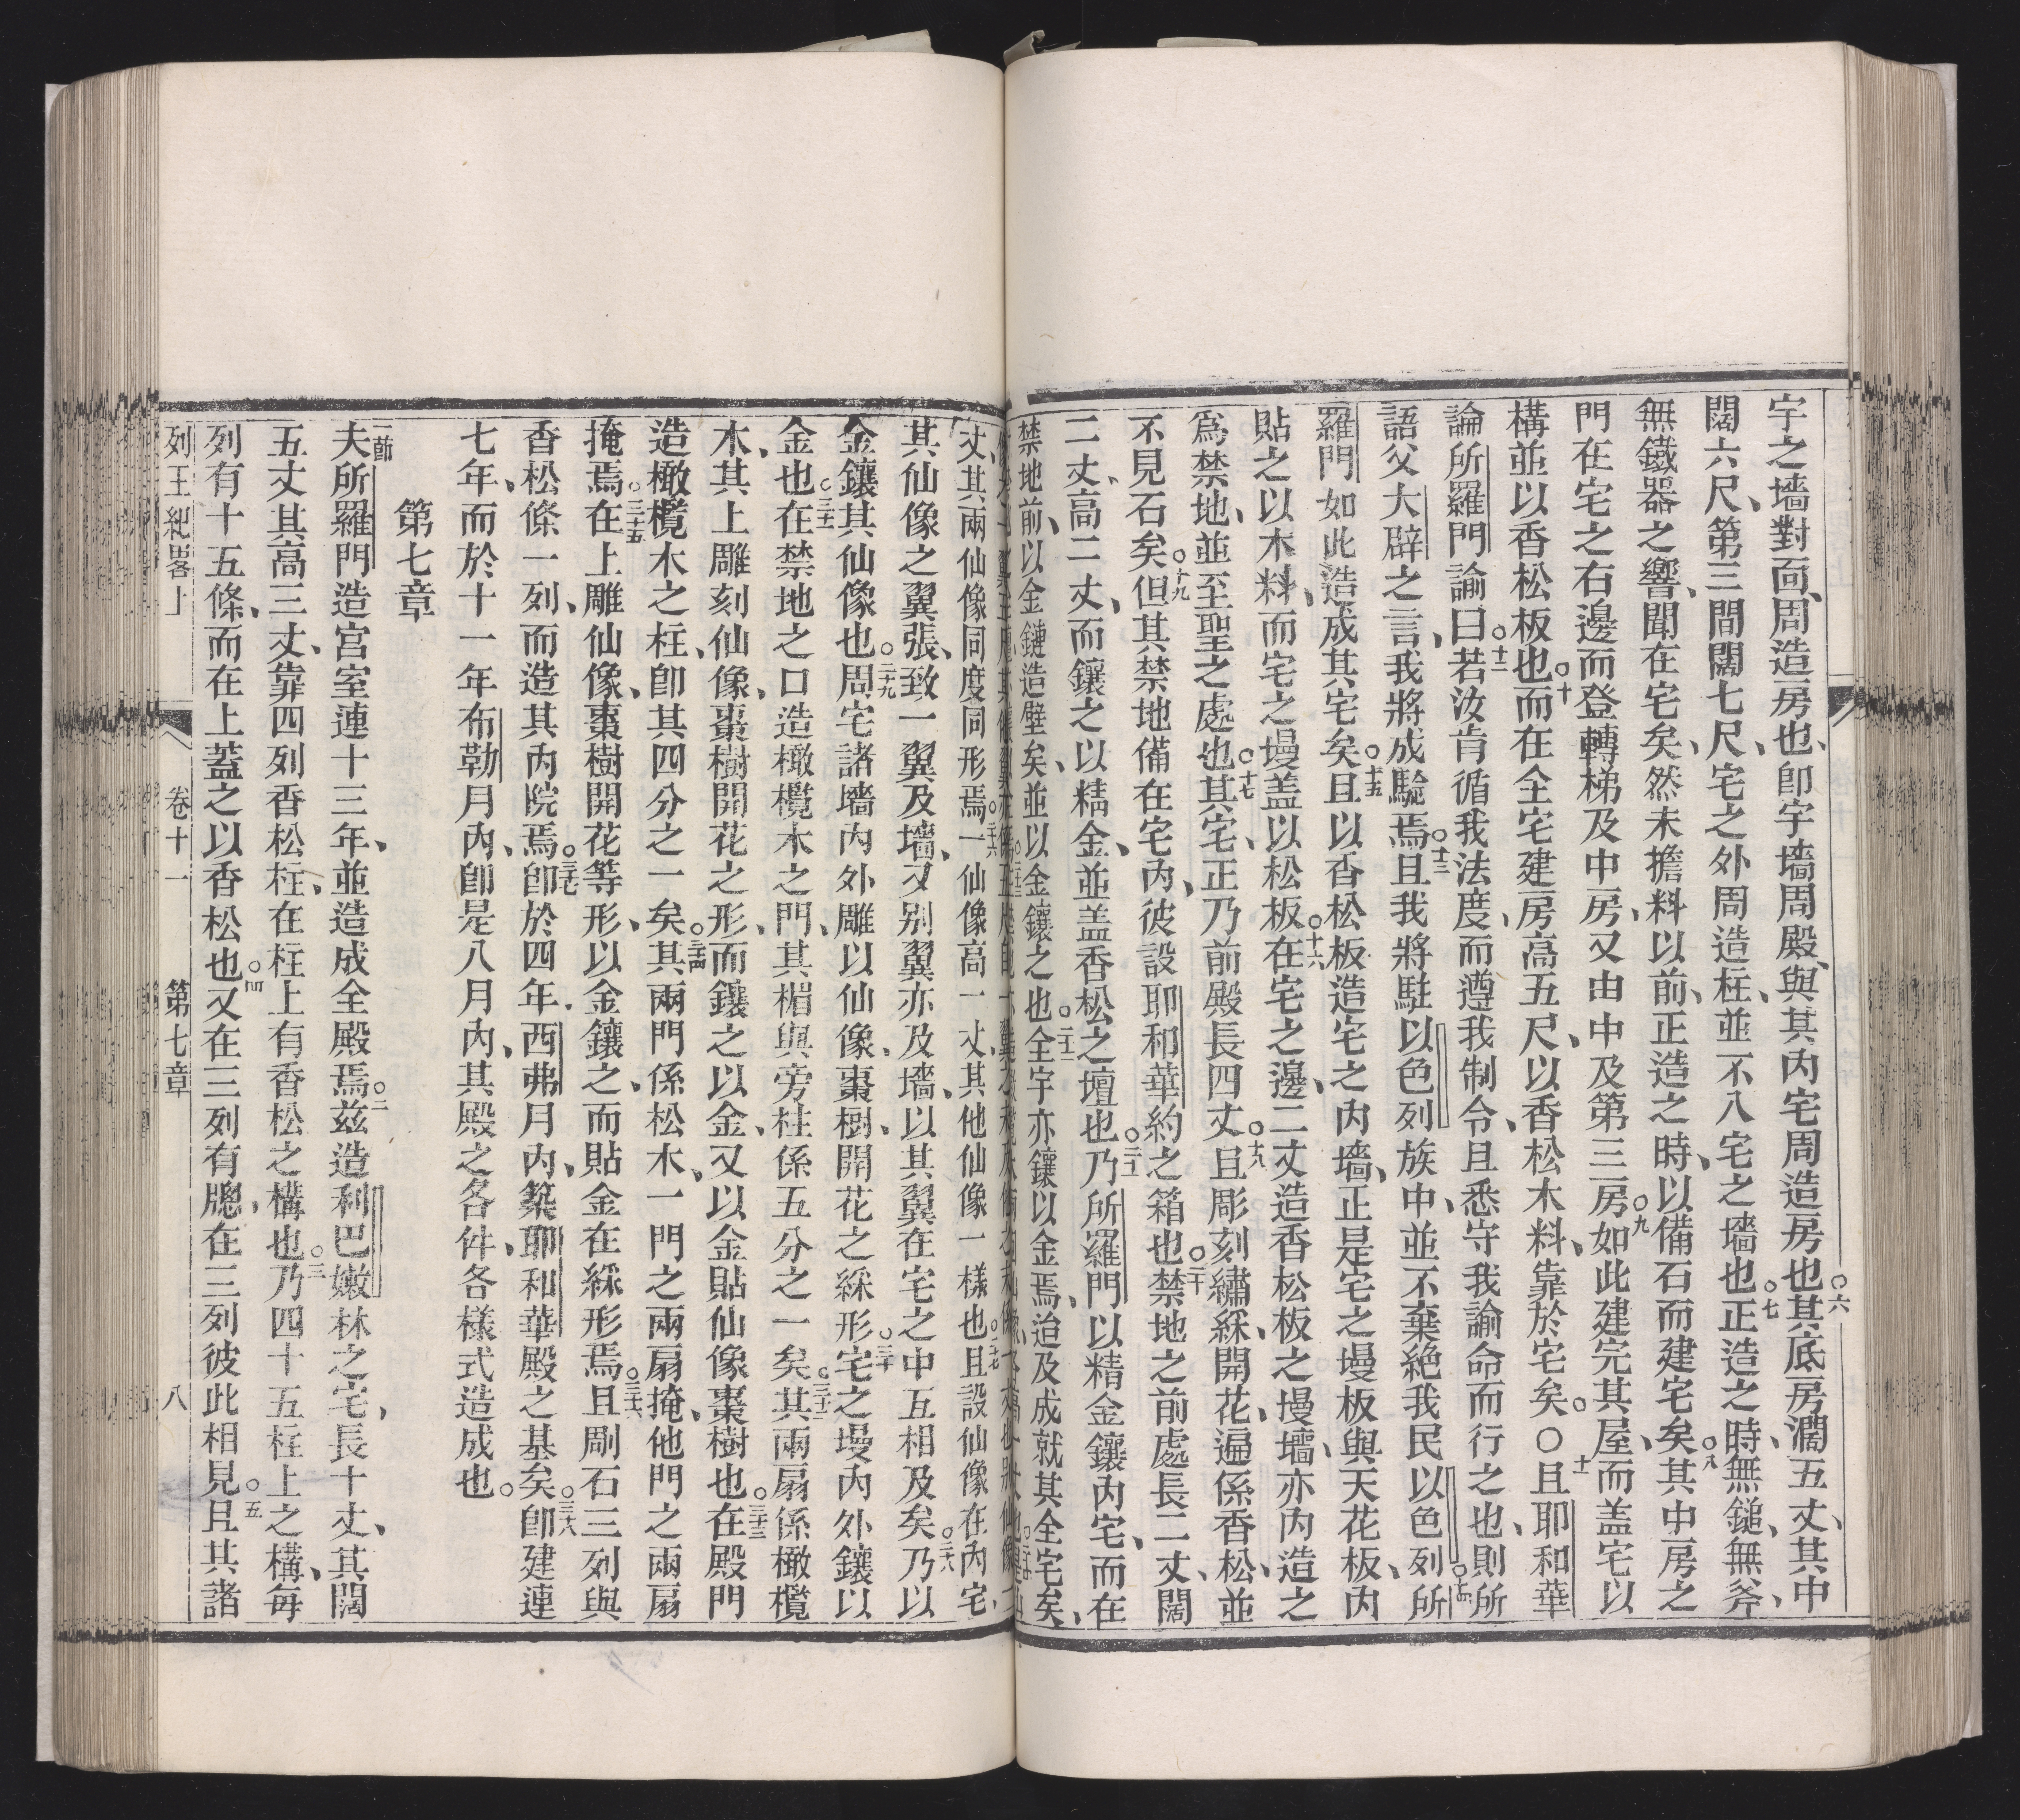 宇之墻對面、周造房也、卽宇墻周殿、與其內宅周造房也○六其底房濶五丈、其中
闊六尺、第三間闊七尺、宅之外周造柱、並不入宅之墻也○七正造之時、無鎚、無斧、
無鐵器之響、聞在宅矣、然未擔料以前、正造之時、以備石而建宅矣○八其中房之
門在宅之右邊而登轉梯及中房、又由中及第三房○九如此建完其屋、而盖宅以
構並以香松板也○十而在全宅建房高五尺、以香松木料、靠於宅矣○〇十一且耶和華
論所羅門諭曰○十二若汝肯循我法度、而遵我制令、且悉守我諭命而行之也、則所
語父大辟之言、我將成驗焉○十三且我將駐以色列族中、並不棄絕我民以色列○十四所
羅門如此造成其宅矣○十五且以香松板造宅之內墻、正是宅之墁板與天花板、內
貼之以木料、而宅之墁盖以松板○十六在宅之邊、二丈造香松板之墁墻、亦內造之
爲禁地、並至聖之處也○十七其宅、正乃前殿長四丈○十八且彫刻繡綵、開花、遍係香松、並
不見石矣○十九但其禁地備在宅內、彼設耶和華約之箱也○二十禁地之前處長二丈、闊
二丈、高二丈、而鑲之以精金、並盖香松之壇也○二十一乃所羅門以精金鑲內宅、而在
禁地前、以金鏈造壁矣、並以金鑲之也○二十二全宇亦鑲以金焉、迨及成就其全宅矣、
丈、其兩仙像同度同形焉○二十六一仙像高一丈、其他仙像一樣也○二十七且設仙像在內宅、
其仙像之翼張、致一翼及墻、又别翼亦及墻、以其翼在宅之中互相及矣○二十八乃以
金鑲其仙像也○二十九周宅諸墻內外雕以仙像、棗樹、開花之綵形○三十宅之墁內外鑲以
金也○三十一在禁地之口造橄欖木之門、其楣與旁柱係五分之一矣○三十二其兩扇係橄欖
木、其上雕刻仙像、棗樹開花之形、而鑲之以金、又以金貼仙像棗樹也○三十三在殿門
造橄欖木之柱、卽其四分之一矣○三十四其兩門係松木、一門之兩扇掩、他門之兩扇
掩焉○三十五在上雕仙像、棗樹開花等形、以金鑲之、而貼金在綵形焉○三十六且剛石三列與
香松條一列、而造其內院焉○三十七卽於四年西弗月內、築耶和華殿之基矣○三十八卽建連
七年、而於十一年布勒月內、卽是八月內、其殿之各件、各樣式造成也○
第七章
一節夫所羅門造宮室連十三年、並造成全殿焉○二茲造利巴嫩林之宅、長十丈、其闊
五丈其高三丈、靠四列香松柱、在柱上有香松之構也○三乃四十五柱上之構、每
列有十五條、而在上蓋之以香松也○四又在三列有牕、在三列彼此相見○五且其諸
列王紀畧上 卷十一 第七章 八